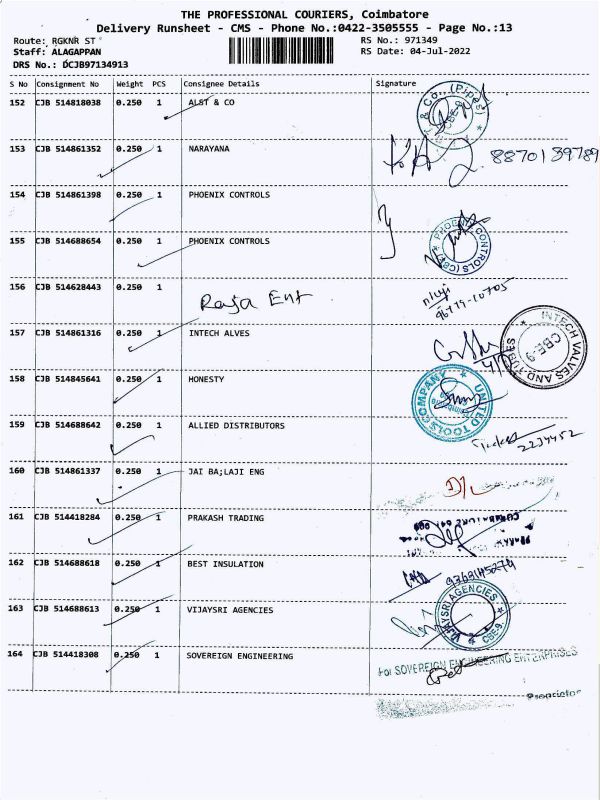 THE PROFESSIONAL COURIERS, Coimbatore
Delivery Runsheet - CMS - Phone No.:0422-3505555 - Page No.:13
Route: RGKNR ST
RS No.: 971349
Staff: ALAGAPPAN
RS Date: 04-Jul-2022
DRS No.: DCJB97134913
S No Consignment No Weight PCS Consignee Details Signature
152 CJB 514818038 0.250 1 ALST & CO
& Co., (Pipes) CBE-9
153 CJB 514861352 0.250 1 NARAYANA 8870139789
154 CJB 514861398 0.250 1 PHOENIX CONTROLS
155 CJB 514688654 0.250 1 PHOENIX CONTROLS
PHOENIX CONTROLS (CBE)
156 CJB 514628443 0.250 1 Raja Ent
96779-10705
157 CJB 514861316 0.250 1 INTECH ALVES
INTECH VALVES AND TUBES CBE-9
158 CJB 514845641 0.250 1 HONESTY
UNITED TOOLS COMPANY
159 CJB 514688642 0.250 1 ALLIED DISTRIBUTORS
2234452
160 CJB 514861337 0.250 1 JAI BA;LAJI ENG
161 CJB 514418284 0.250 1 PRAKASH TRADING
162 CJB 514688618 0.250 1 BEST INSULATION
163 CJB 514688613 0.250 1 VIJAYSRI AGENCIES
VIJAYSRI AGENCIES CBE-9
164 CJB 514418308 0.250 1 SOVEREIGN ENGINEERING
For SOVEREIGN ENGINEERING ENTERPRISES
Proprietor